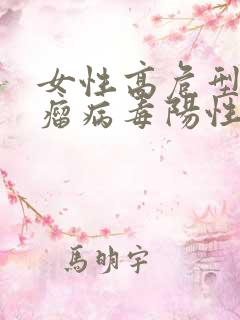 女性高危型
瘤病毒陽性
馬明宇